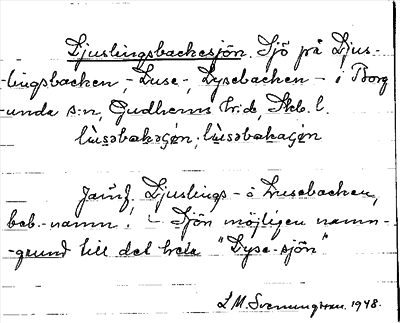 Ljuslingsbackesjön. Sjö på Ljus-
-lingsbacken, - Luse-, Lysebacken - i Borg
-unda s:n, Gudhems h:d, Skb. l.
lùsəbakaʃøn, lùsəbakaʃøn
Jämf. Ljuslings- o Lusebacken,
beb.-namn. - Sjön möjligen namn-
-grund till det hela "Lyse-sjön"
L M. Svenungsson. 1948.